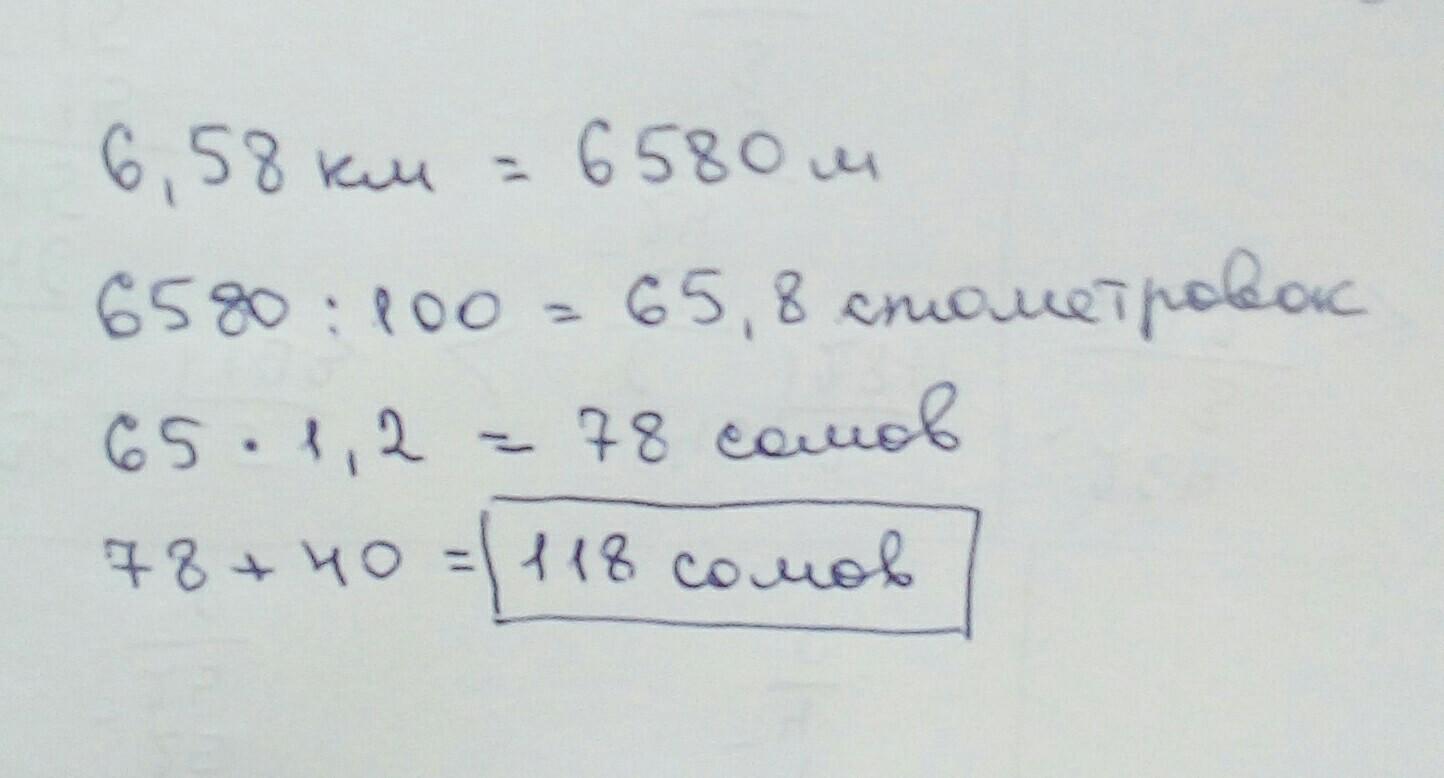 6,58 км = 6580 м
6580 : 100 = 65,8 стометровок
65 · 1,2 = 78 сомов
78 + 40 = 118 сомов